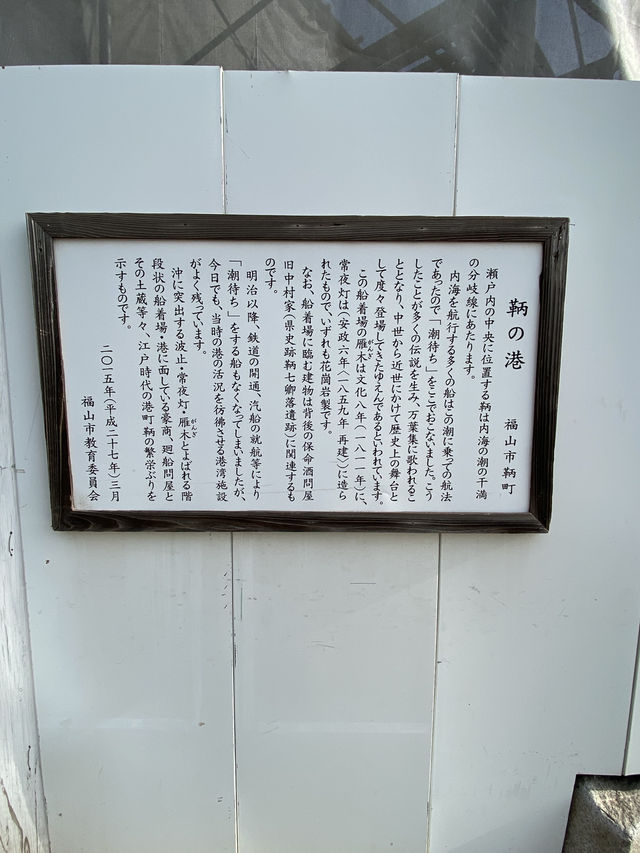 鞆の港
福山市鞆町
瀬戸内の中央に位置する鞆は内海の潮の干満
の分岐線にあたります。
内海を航行する多くの船はこの潮に乗っての航法
であったので「潮待ち」をここでおこないました。こう
したことが多くの伝説を生み、万葉集に歌われるこ
ととなり、中世から近世にかけて歴史上の舞台と
して度々登場してきたゆえんであるといわれています。
この船着場の雁木は文化八年（一八一一年）に、
がんぎ
常夜灯は（安政六年〈一八五九年 再建〉）に造ら
れたもので、いずれも花崗岩製です。
なお、船着場に臨む建物は背後の保命酒問屋
旧中村家（県史跡鞆七卿落遺跡）に関連するも
のです。
明治以降、鉄道の開通、汽船の就航等により
「潮待ち」をする船もなくなってしまいましたが、
今日でも、当時の港の活況を彷彿させる港湾施設
がよく残っています。
沖に突出する波止・常夜灯・雁木とよばれる階
がんぎ
段状の船着場・港に面している豪商、廻船問屋と
その土蔵等々、江戸時代の港町鞆の繁栄ぶりを
示すものです。
二〇一五年（平成二十七年）三月
福山市教育委員会